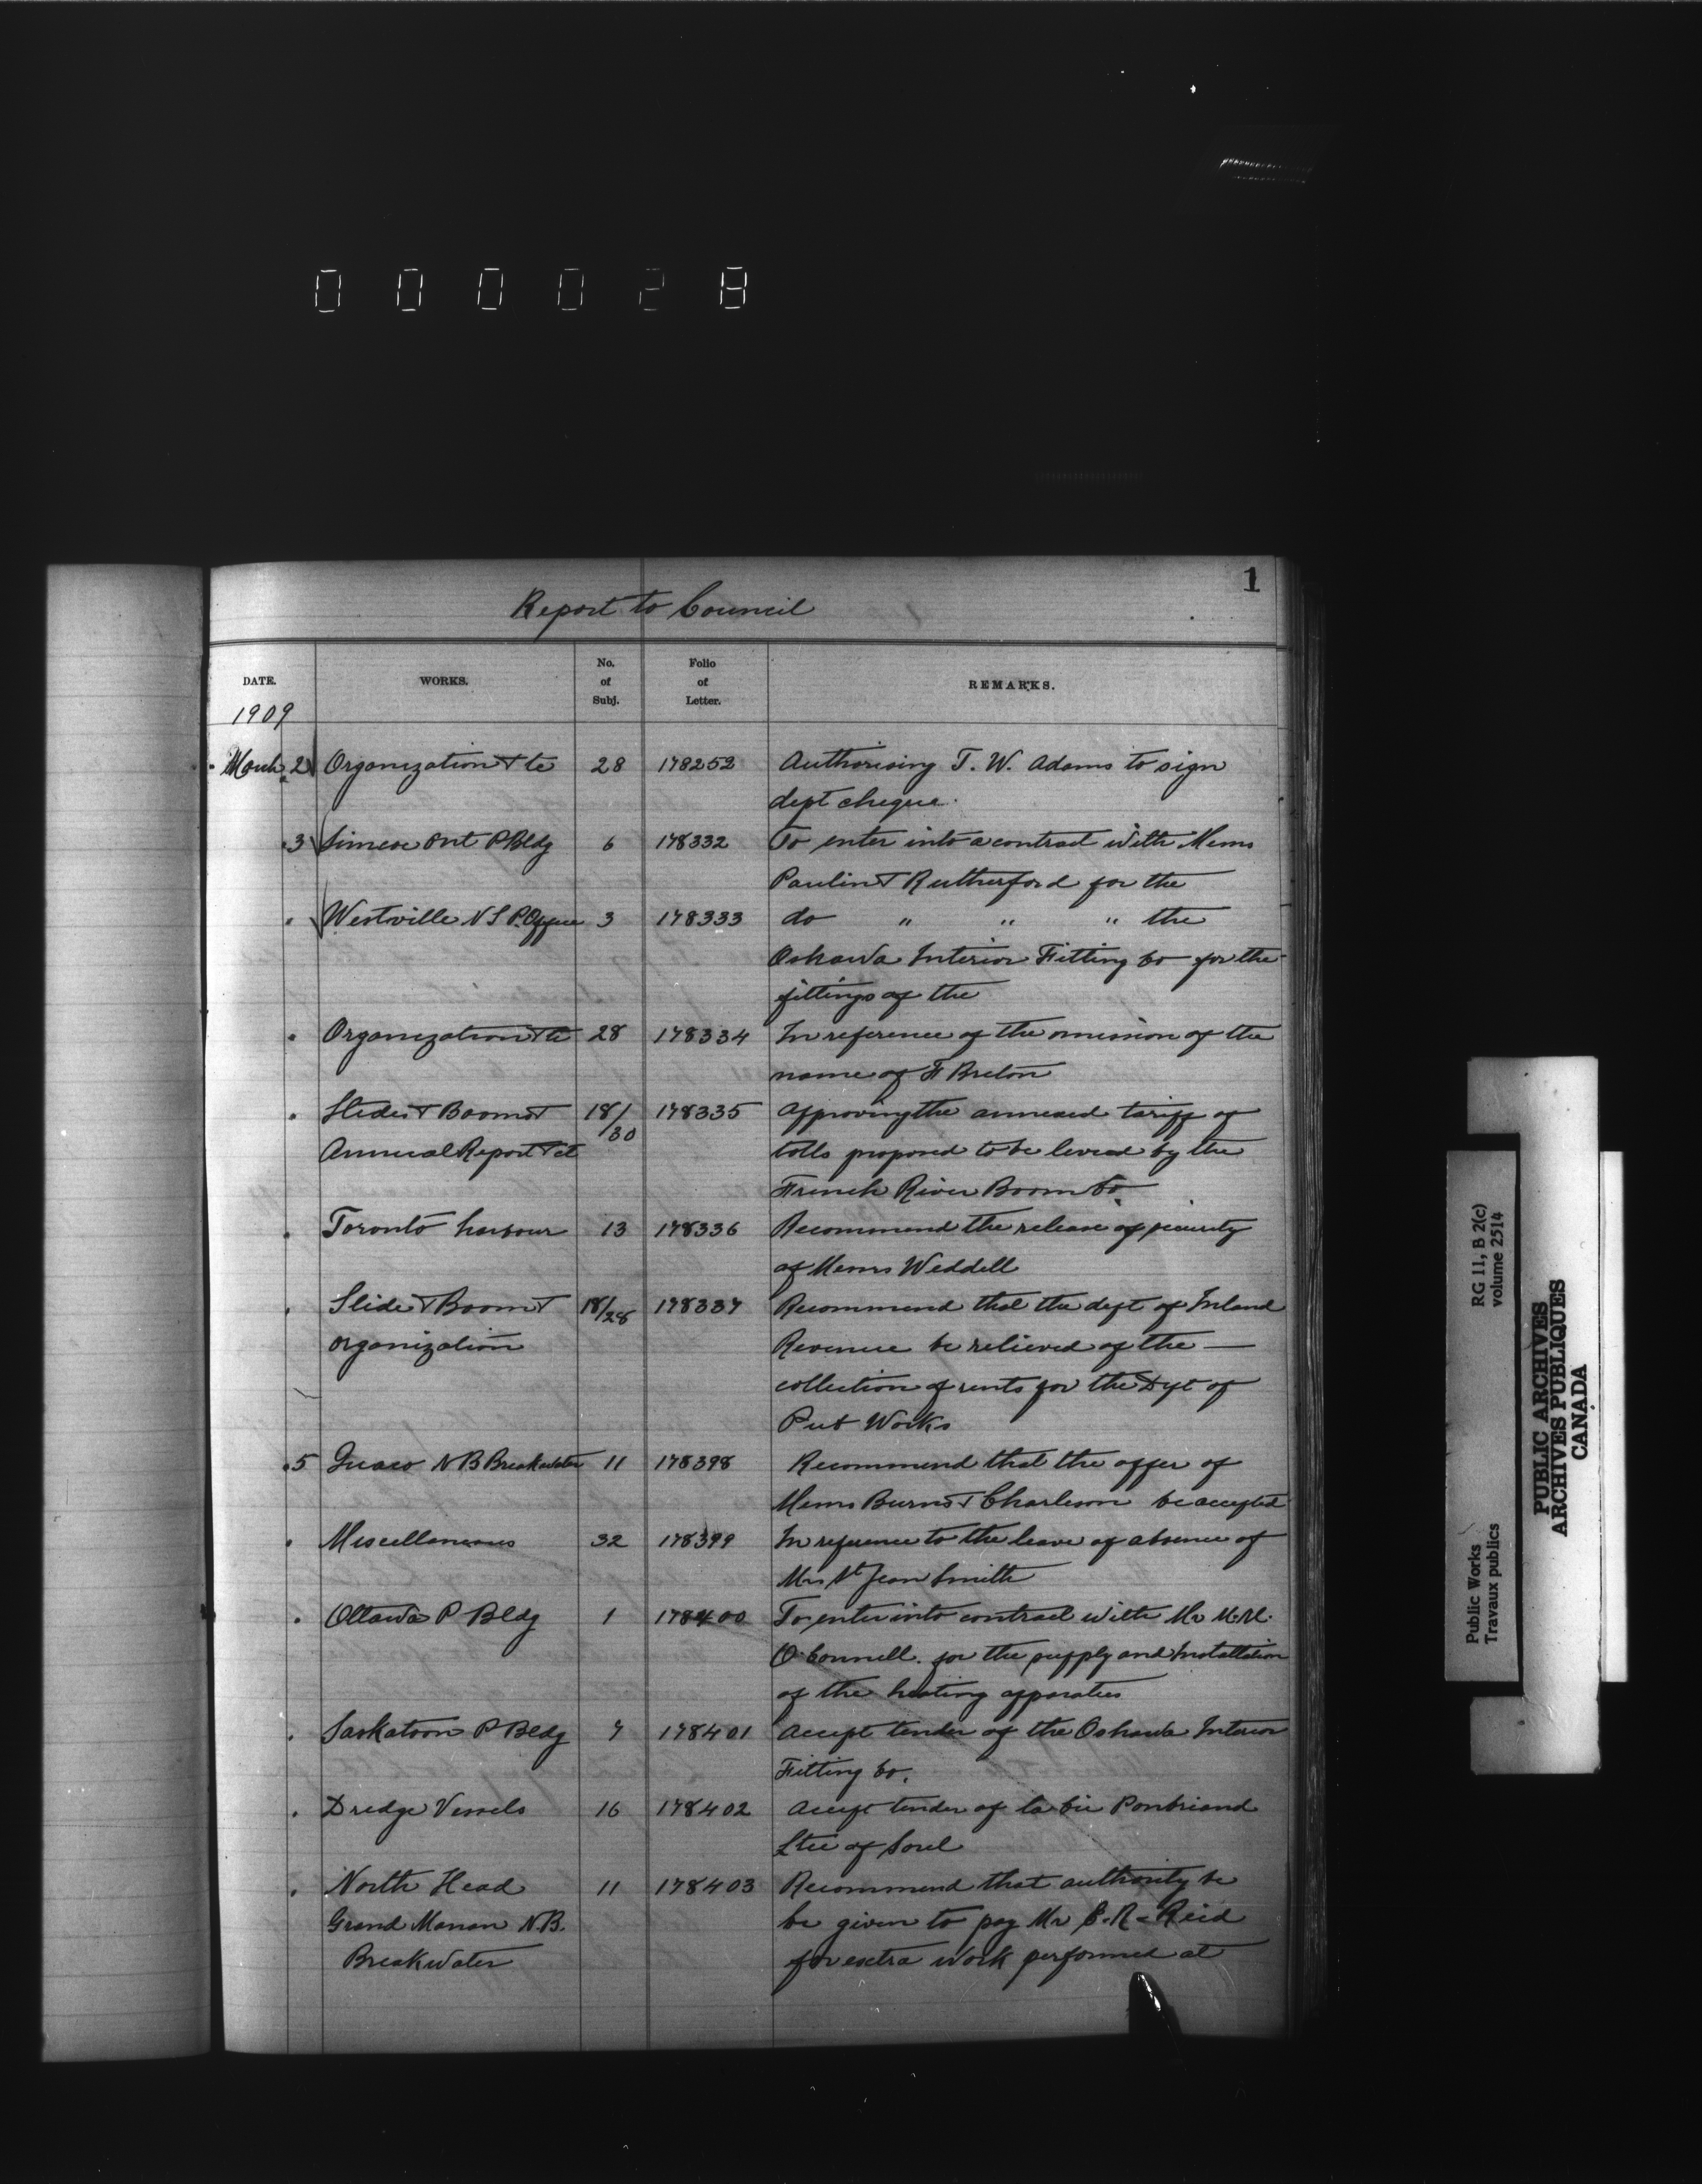 000028
1
Report to Council
DATE. WORKS. No. of Subj. Folio of Letter. REMARKS.
1909
March 2 Organization & tc 28 178252 Authorising T. W. Adams to sign
dept cheque.
" 3 Simcoe Ont P Bldg 6 178332 To enter into a contract with Messrs
Paulin & Rutherford for the
" Westville N S P. Office 3 178333 do " " " the
Oshawa Interior Fitting Co for the
fittings of the
" Organization & tc 28 178334 In reference of the omission of the
name of F Breton
" Slides & Booms & 18/30 178335 Approving the annexed tariff of
Annual Report & ct tolls proposed to be levied by the
French River Boom Co
" Toronto harbour 13 178336 Recommend the release of security
of Messrs Weddell
" Slide & Boom & 18/28 178337 Recommend that the dept of Inland
organization Revenue be relieved of the —
collection of rents for the Dept of
Pub Works
" 5 Quaco N B Breakwater 11 178398 Recommend that the offer of
Messrs Burns & Charleson be accepted
" Miscellaneous 32 178399 In reference to the leave of absence of
Mrs St Jean Smith
" Ottawa P Bldg 1 178400 To enter into contract with Mr
O'Connell. for the supply and Installation
of the heating apparatus
" Saskatoon P Bldg 7 178401 Accept tender of the Oshawa Interior
Fitting Co.
" Dredge Vessels 16 178402 Accept tender of la Cie Pontbriand
Ltee of Sorel
" North Head 11 178403 Recommend that authority be
Grand Manan N.B. be given to pay Mr E. R. Reid
Breakwater for extra work performed at
Public Works RG 11, B 2(c)
Travaux publics volume 2514
PUBLIC ARCHIVES
ARCHIVES PUBLIQUES
CANADA